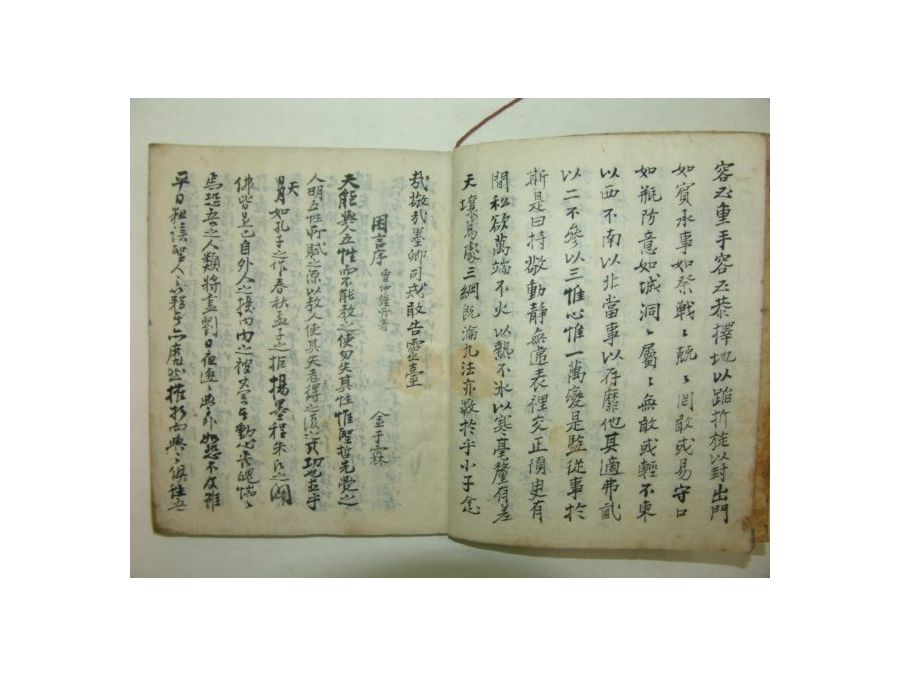 容必重手容必恭擇地以蹈折旋以封出門
如賓承事如祭戰〻兢〻罔敢或易守口
如瓶防意如城洞〻屬〻無敢或輕不東
以西不南以北當事以存靡他其適弗貳
以二不參以三惟心惟一萬變是監從事於
斯是曰持敬動靜無違表裡交正須臾有
間私欲萬端不火以熱不氷以寒毫釐有差
天壤易處三綱旣淪九法亦斁於乎小子念
哉敬哉墨卿司戒敢告靈臺
困言序 曹仲謹所著 金子霖
天能與人五性而不能敎之使勿失其性惟聖哲先覺之
人明五性所賦之源以敎人使其失者得之復以其功也並乎
天
月如孔子之作春秋孟子之拒楊墨程朱氏之闢
佛皆是已自外人之接內內之被
焉恐吾之人類將盡劉日夜逐〻
平日粗讀聖人